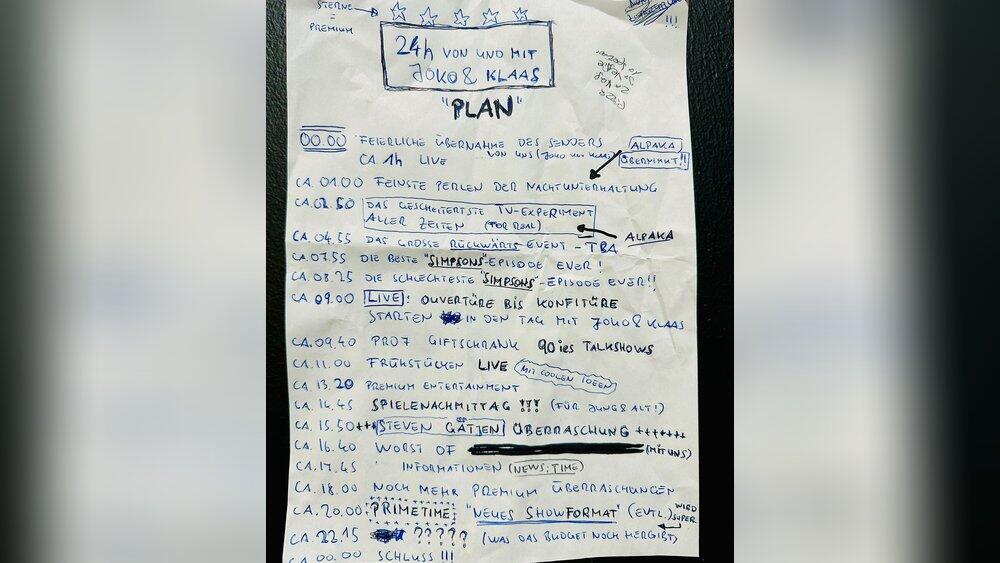 STERNE
=
PREMIUM
!!!
24h VON UND MIT
JOKO & KLAAS
"PLAN"
00.00 FEIERLICHE ÜBERNAHME DES SENDERS
VON UNS (JOKO UND KLAAS)
CA 1h LIVE
ALPAKA
ÜBERNIMMT!!
CA. 01.00 FEINSTE PERLEN DER NACHTUNTERHALTUNG
CA. 02.50 DAS GESCHEITERTSTE TV-EXPERIMENT
ALLER ZEITEN (FOR REAL)
ALPAKA
CA. 04.55 DAS GROSSE RÜCKWÄRTS EVENT - TBA
CA. 07.55 DIE BESTE "SIMPSONS"-EPISODE EVER!
CA. 08.25 DIE SCHLECHTESTE "SIMPSONS"-EPISODE EVER!!
CA 09.00 LIVE: OUVERTÜRE BIS KONFITÜRE
STARTEN IN DEN TAG MIT JOKO & KLAAS
CA. 09.40 PRO7 GIFTSCHRANK 90ies TALKSHOWS
CA. 11.00 FRÜHSTÜCKEN LIVE (MIT COOLEN IDEEN)
CA. 13.20 PREMIUM ENTERTAINMENT
CA. 14.45 SPIELENACHMITTAG !!! (FÜR JUNG & ALT!)
CA. 15.50 +++ STEVEN GÄTJEN ÜBERRASCHUNG +++++++
CA. 16.40 WORST OF (MIT UNS)
CA. 17.45 INFORMATIONEN (NEWS:TIME)
CA. 18.00 NOCH MEHR PREMIUM ÜBERRASCHUNGEN
CA. 20.00 PRIMETIME "NEUES SHOWFORMAT" (EVTL.) WIRD SUPER
CA. 22.15 ????? (WAS DAS BUDGET NOCH HERGIBT)
CA 00.00 SCHLUSS !!!